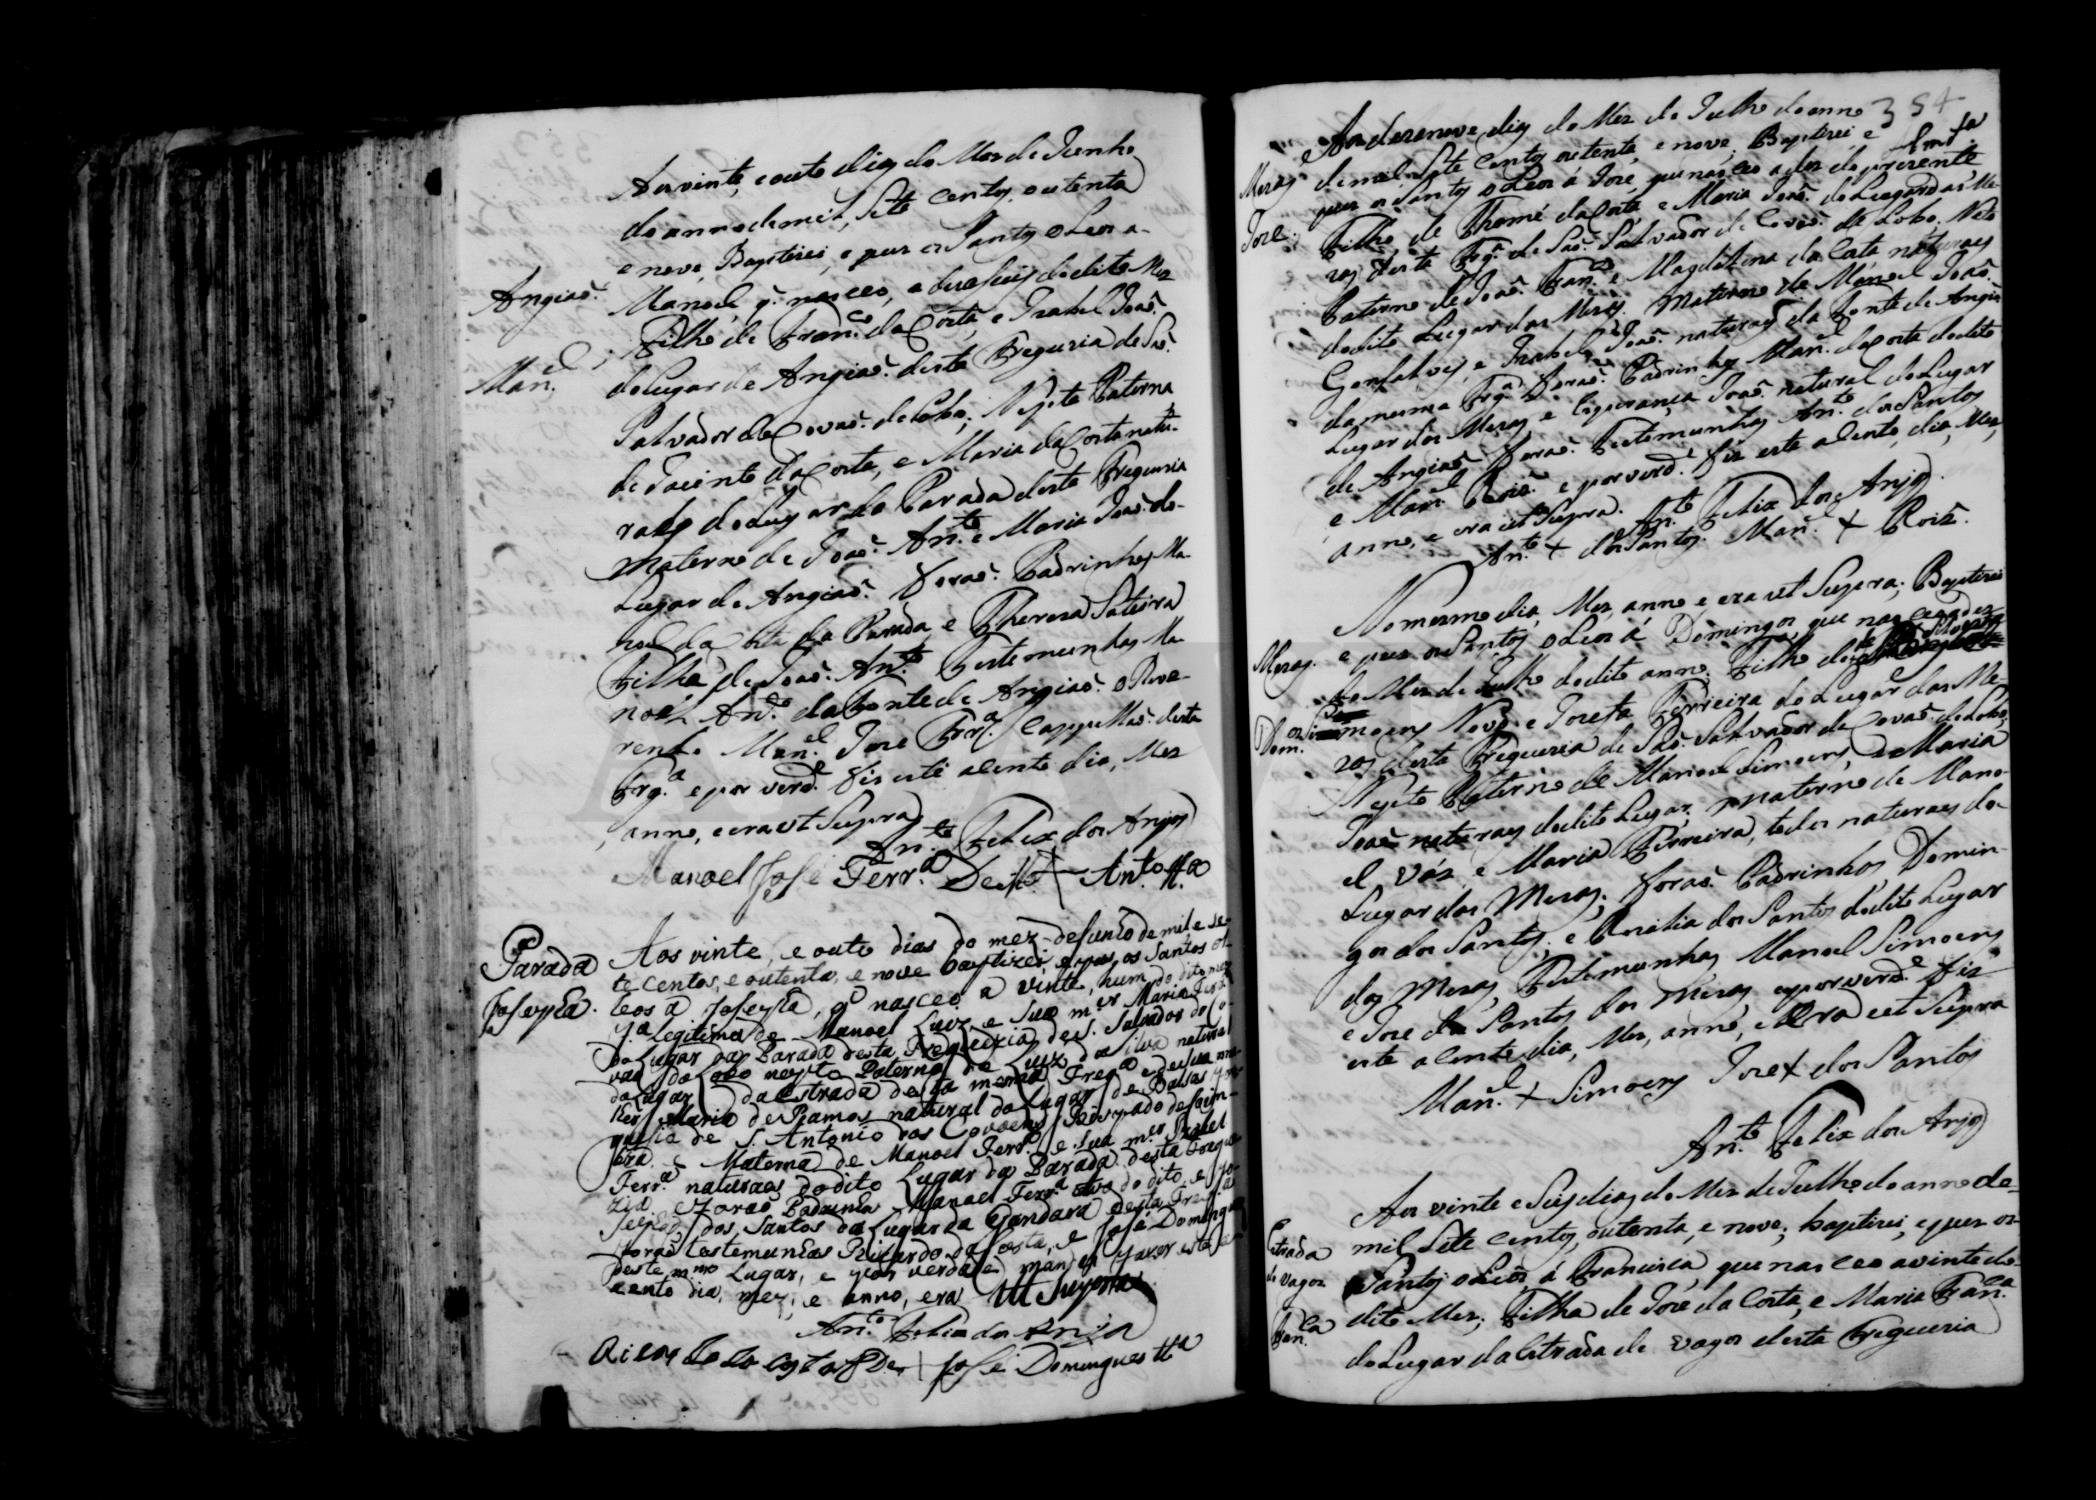 Aos vinte, e outo dias do Mes de Junho
do anno de mil, Sete centos, outenta
e nove, Baptizei, e puz os Santos oLeos a-
Angiaõ.
Manoel, q̃ nasceo, a dezaseis do dito Mez
Filho de Fran.co da Costa, e Izabel Joaõ.
Man.el
do Lugar de Angiaõ. desta Freguezia de Saõ.
Salvador de Covaõ. do Lobo; Neto Paterna
de Jacinto da Costa, e Maria da Costa natu-
raes do Lugar da Parada desta Freguezia
Materno de Joaõ. An.to e Maria Joaõ. do-
Lugar de Angiaõ. Foraõ. Padrinhos Ma-
noel da Costa da Parada, e Thereza Solteira
Filha de Joaõ. An.to Testemunhas Ma-
noel An.to da Fonte de Angiaõ. o Reve-
rendo Man.el Joze Frr.a Cappellaõ. desta
Frg.a e por verd.e fis este acento dia, Mez
anno, e era ut Supra
An.to Felix dos Anjos
Manoel José Ferr.a De + An.to tt.a
Parada
Aos vinte, e outo dias do mez de Junho de mil e se-
te centos, e outenta, e nove baptizei, e pus os Santos o-
Josepha.
leos a Josepha, q̃ nasceo a vinte, hum do dito mez
f.a Legitima de Manoel Luiz e sua m.er Maria Ferr.a
do Lugar da Parada desta Freguezia de S. Salvador do Co-
vaõ do Lobo neta Paterna de Luiz da Silva natural
do Lugar da Estrada desta mesma Freg.a e de sua mu-
lher Maria de Ramos natural do Lugar de Balsas
de S. Antonio dos Covoens Bispado de Coim-
bra. e Materna de Manoel Ferr.a e sua m.er Izabel
Ferr.a naturaes do dito Lugar da Parada desta Fregue-
zia. Foraõ Padrinhos Manoel Ferr.a do dito, e Jo-
sepha dos Santos do Lugar da Gandara desta Freg.a
foraõ testemunhas Ricardo da Costa, e José Domingues
deste m.mo Lugar, e por verdade mandei fazer este a-
cento dia, mez, e anno, era Ut Supra
An.to Felix dos Anjos
Ricardo da Costa De + José Domingues tt.a
354
Aos dezanove dias do Mez de Julho do anno
Mezas
de mil Sete centos outenta, e nove, Baptizei, e
puz os Santos oLeos á Joze, que nasceo a dez do prezente
Joze.
Filho de Thomé da Costa e Maria Joaõ. do Lugar das Me-
zas desta Frg.a de Saõ. Salvador de Covaõ. do Lobo. Neto
Paterno de Joaõ. Fran.co e Magdalena da Cata naturaes
do dito Lugar das Mezas. Materno de Manoel Joaõ.
Gonsalves, e Izabel Joaõ. naturaes da Fonte de Angiaõ
da mesma Frg.a Foraõ. Padrinhos Man.el da Costa do dito
Lugar das Mezas e Esperança Joaõ. natural do Lugar
de Angiaõ. Foraõ. Testemunhas An.to dos Santos
e Man.el Roiz. e por verd.e fiz este acento, dia, Mez,
anno, e era ut Supra. An.to Felix dos Anjos
An.to + dos Santos. Man.el + Roiz.
No mesmo dia, Mez, anno e era ut Supra; Baptizei
Mezas.
e puz os Santos oLeos á Domingos, que nasceo a dez
do Mez de Julho do dito anno. Filho de
Dom.os
Simoens Novo e Jozefa Ferreira do Lugar das Me-
zas desta Freguezia de Saõ. Salvador de Covaõ. do Lobo,
Neto Paterno de Manoel Simoens, e Maria
Joaõ naturaes do dito Lugar; Materno de Mano-
el Váz e Maria Ferreira, todos naturaes do-
Lugar das Mezas; Foraõ. Padrinhos, Domin-
gos dos Santos, e Roza dos Santos do dito Lugar
das Mezas, Testemunhas Manoel Simoens
e Joze dos Santos das Mezas e por verd.e fiz
este acento dia, Mez, anno, e Era ut Supra
Man.el + Simoens Joze + dos Santos
An.to Felix dos Anjos
Aos vinte e Seis dias do Mez de Julho do anno de-
Estrada
mil Sete centos, outenta, e nove; baptizei, e puz os-
de vagos
Santos oLeos á Francisca, que nasceo a vinte do-
Fran.ca
dito Mez; Filha de Joze da Costa, e Maria Fran.ca
do Lugar da Estrada de vagos desta Freguezia